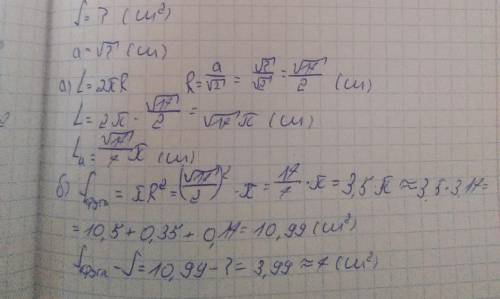 S = 7 (см²)
a = √7 (см)
а) L = 2πR R = a/√2 = √7/√2 = √14/2 (см)
L = 2π · √14/2 = √14π (см)
L₄ = √14/4 π (см)
б) Sкруга = πR² = (√14/2)² · π = 14/4 · π = 3,5π ≈ 3,5 · 3,14 =
= 10,5 + 0,35 + 0,14 = 10,99 (см²)
Sкруга - S = 10,99 - 7 = 3,99 ≈ 4 (см²)